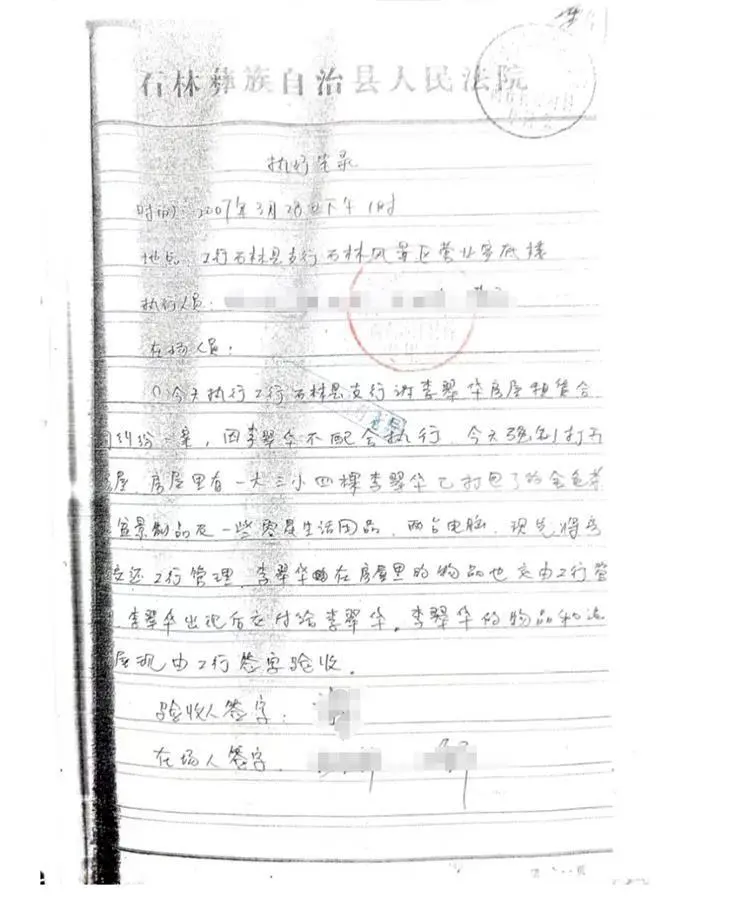 石林彝族自治县人民法院
执行笔录
时间：2007年3月28日下午1时
地点：工行石林县支行石林风景区营业室底楼
执行人员：
在场人员：
今天执行工行石林县支行诉李翠华房屋租赁合
纠纷一案，因李翠华不配合执行，今天强制打开
屋，房屋里有一大三小四棵李翠华已打包了的金
盆景制品及一些零星生活用品，两台电脑，现先将房
还工行管理，李翠华在房屋里的物品也交由工行管
李翠华出现后交付给李翠华。李翠华的物品和
屋现由工行签字验收。
验收人签字：
在场人签字：